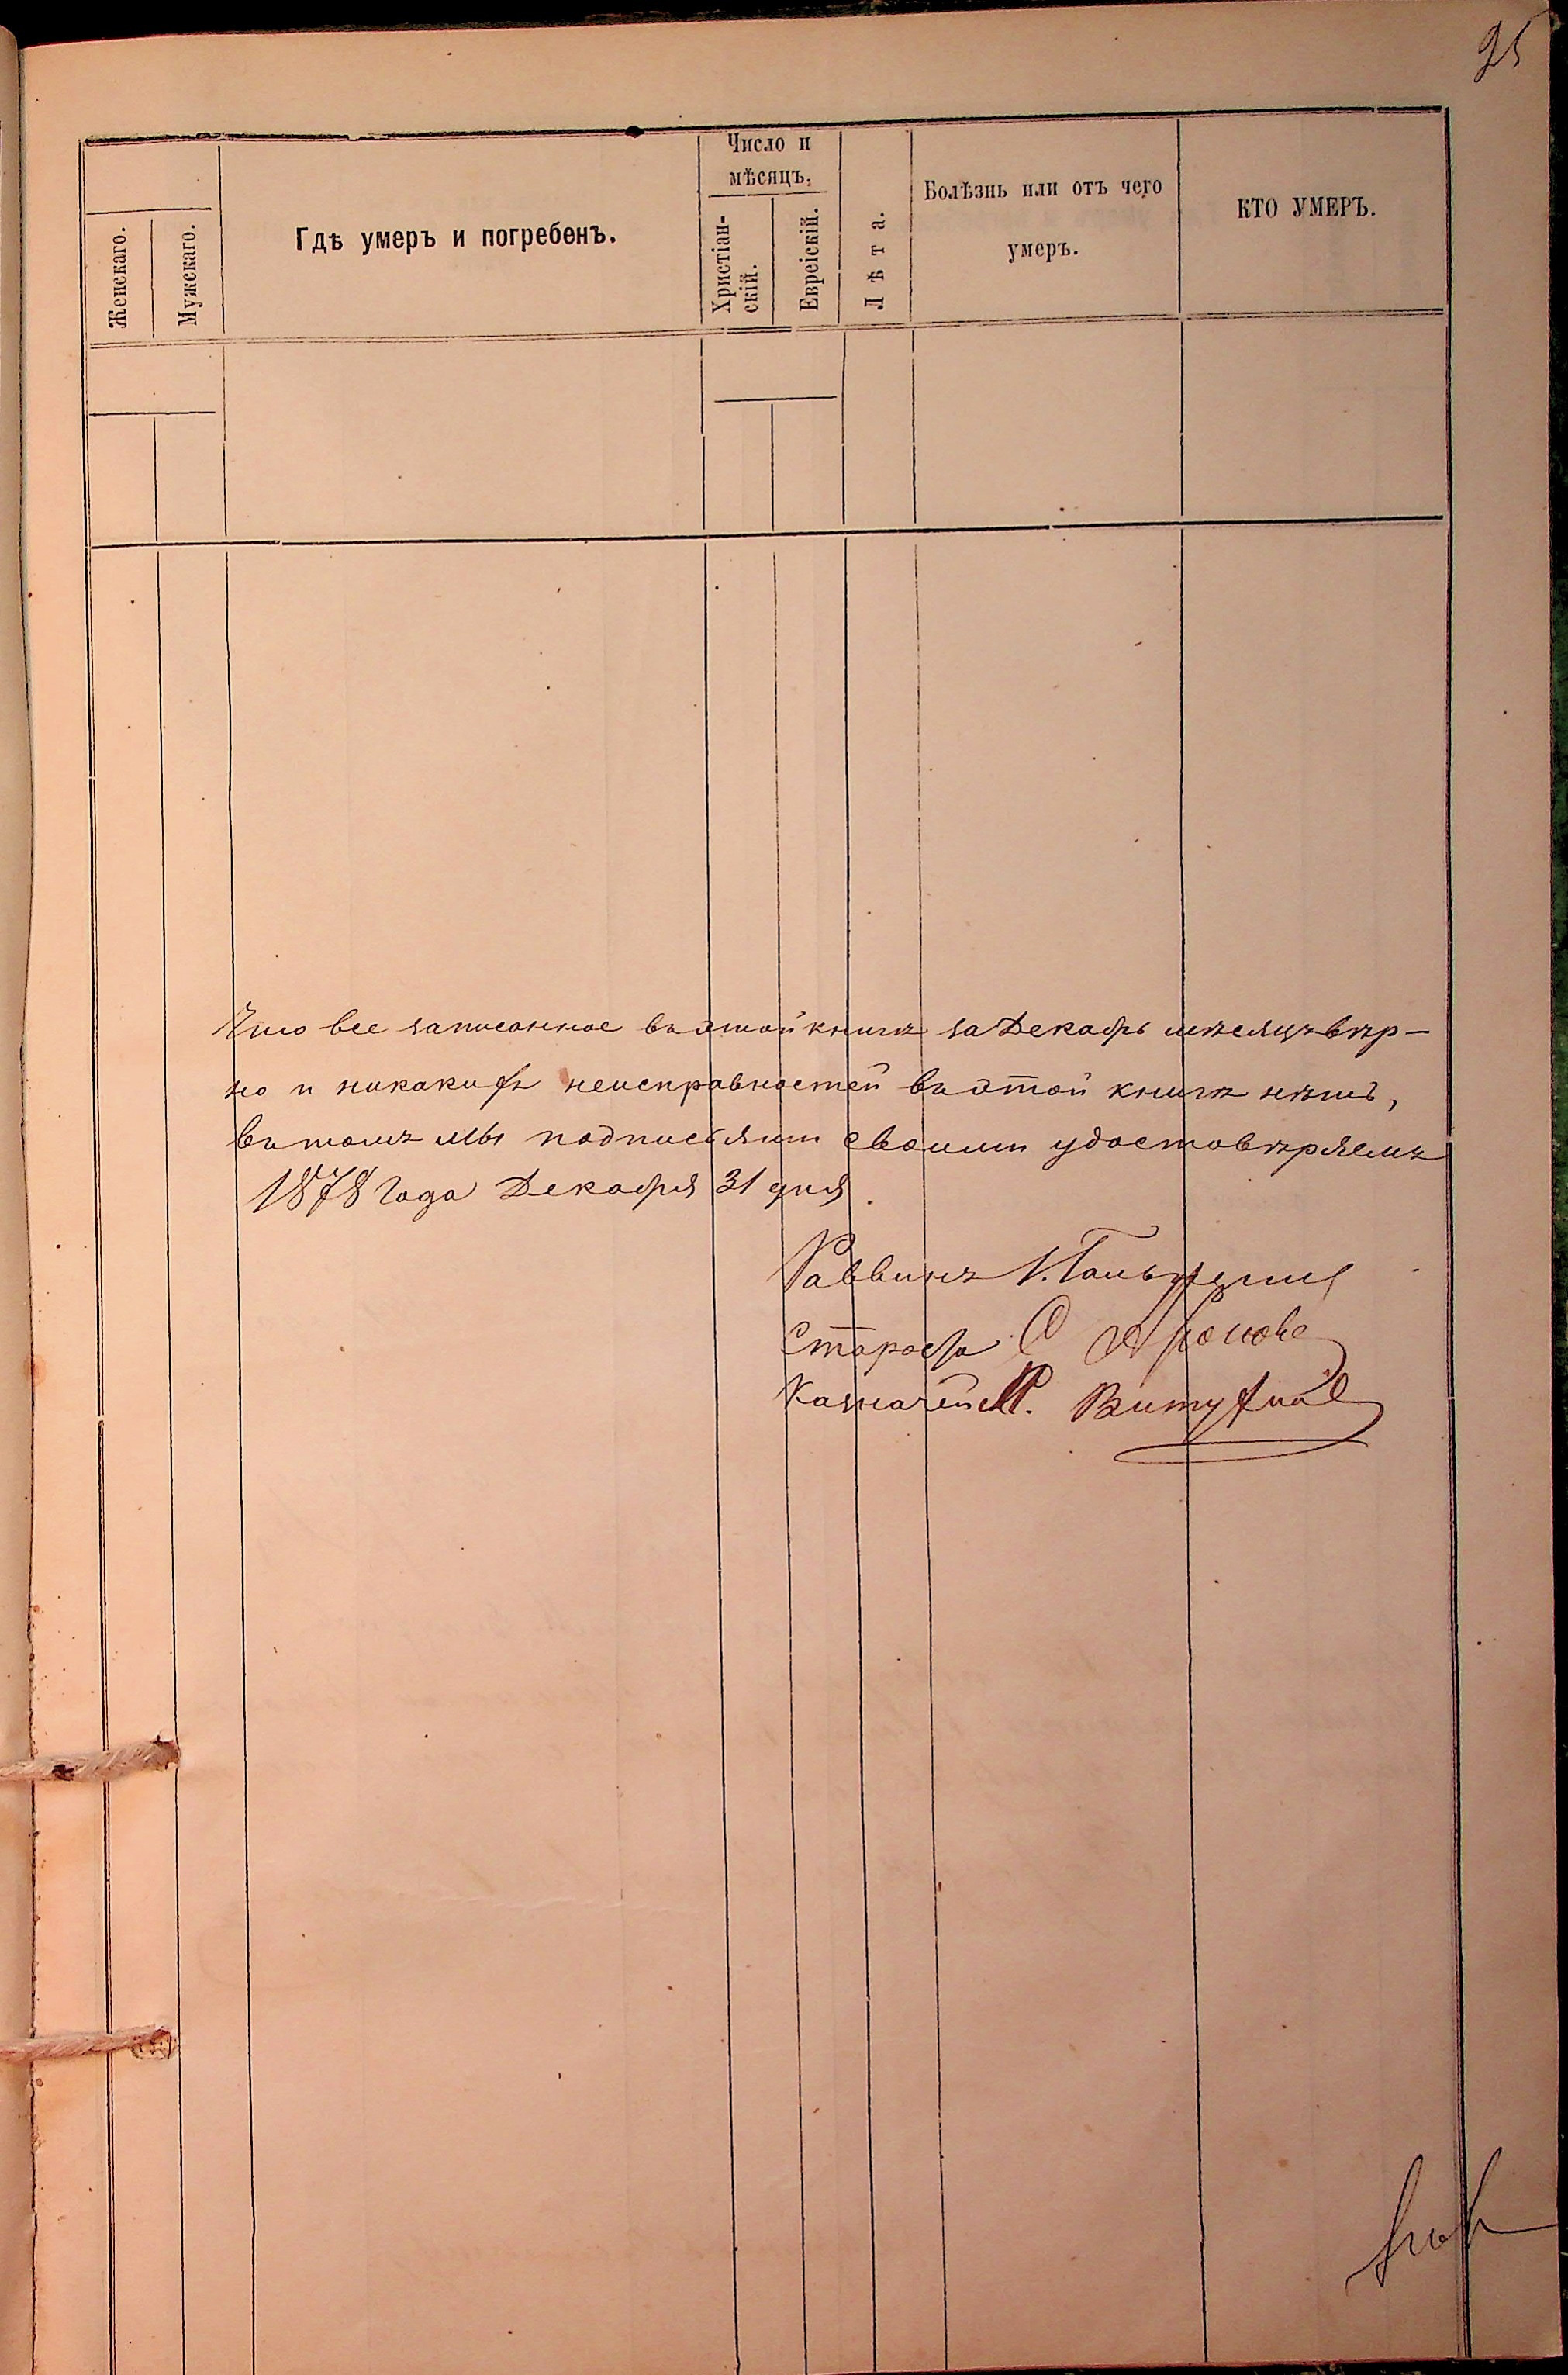 95
Женскаго.
Мужскаго.
Гдѣ умеръ и погребенъ.
Число и
мѣсяцъ.
Христіан-
скій.
Евреіскій.
Лѣта.
Болѣзнь или отъ чего
умеръ.
КТО УМЕРЪ.
Что все записанное въ этой книгѣ за Декабрь мѣсяцъ вѣр-
но и никакихъ неисправностей въ этой книгѣ нѣтъ,
въ томъ мы подписями своими удостовѣряемъ
1878 года Декабря 31 дня.
Раввинъ
Староста
Казначей М.